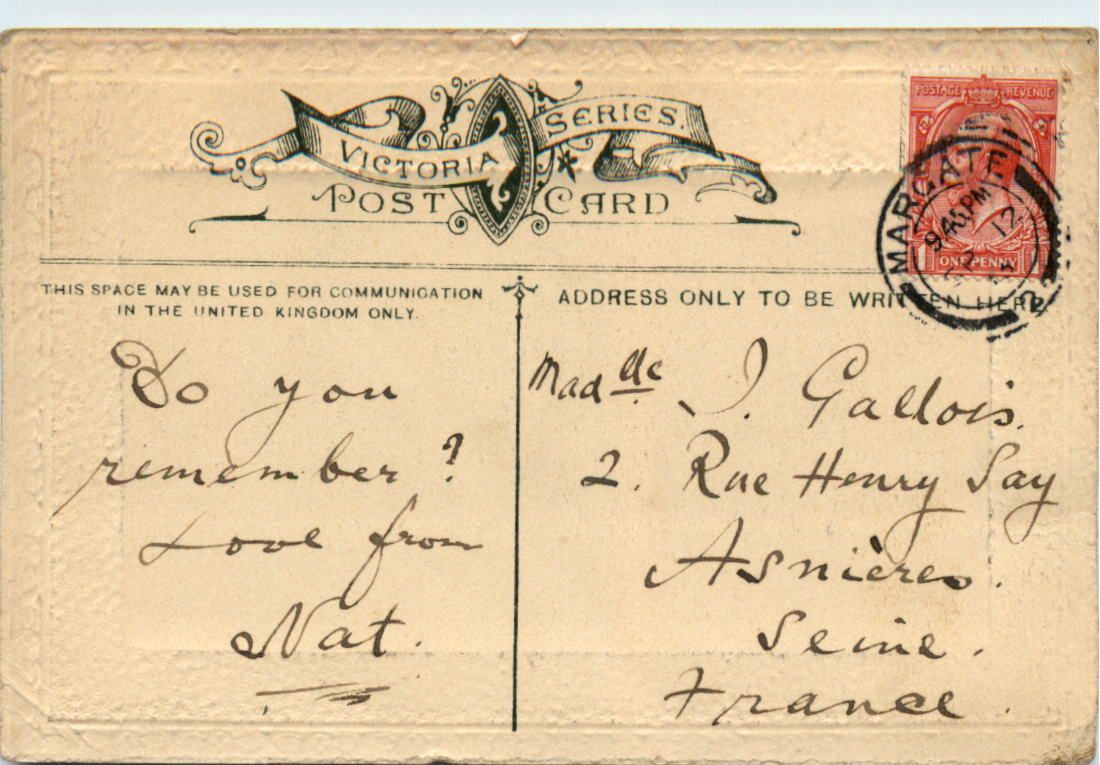 VICTORIA SERIES.
POST CARD
POSTAGE REVENUE
MARGATE
9 45 PM
12
1 ONE PENNY 1
THIS SPACE MAY BE USED FOR COMMUNICATION
IN THE UNITED KINGDOM ONLY.
ADDRESS ONLY TO BE WRITTEN HERE
Do you
remember?
Love from
Nat.
Mad.lle J. Gallois.
2. Rue Henry Say
Asnières.
Seine.
France.